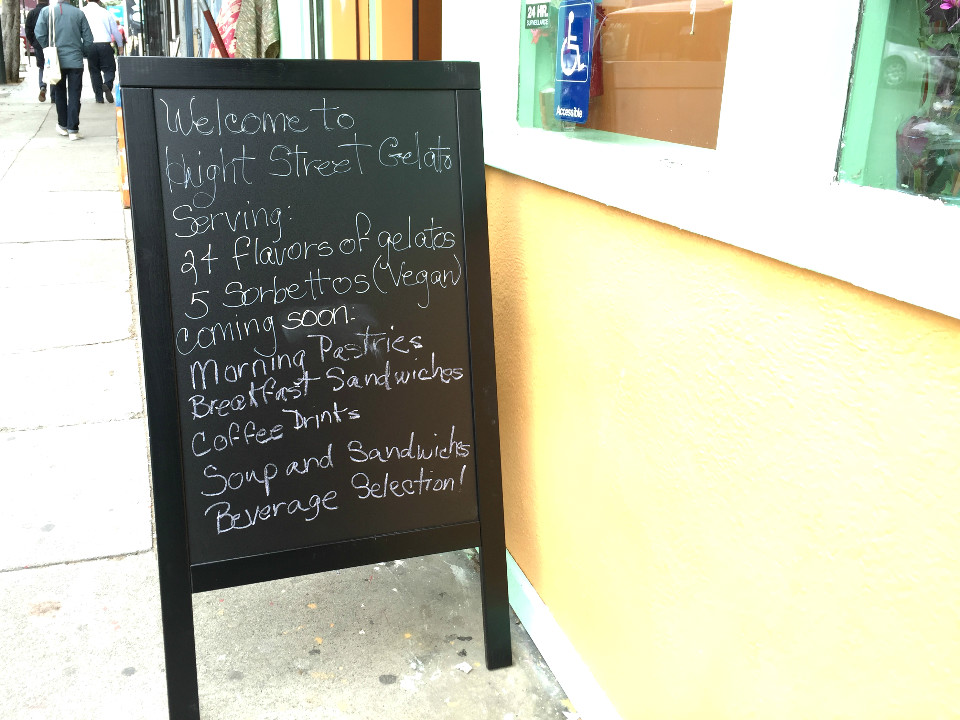 Welcome to
Haight Street Gelato
Serving:
24 flavors of gelatos
5 Sorbettos (Vegan)
coming soon:
Morning Pastries
Breakfast Sandwiches
Coffee Drinks
Soup and Sandwichs
Beverage Selection!
24 HR.
SURVEILLANCE
Accessible